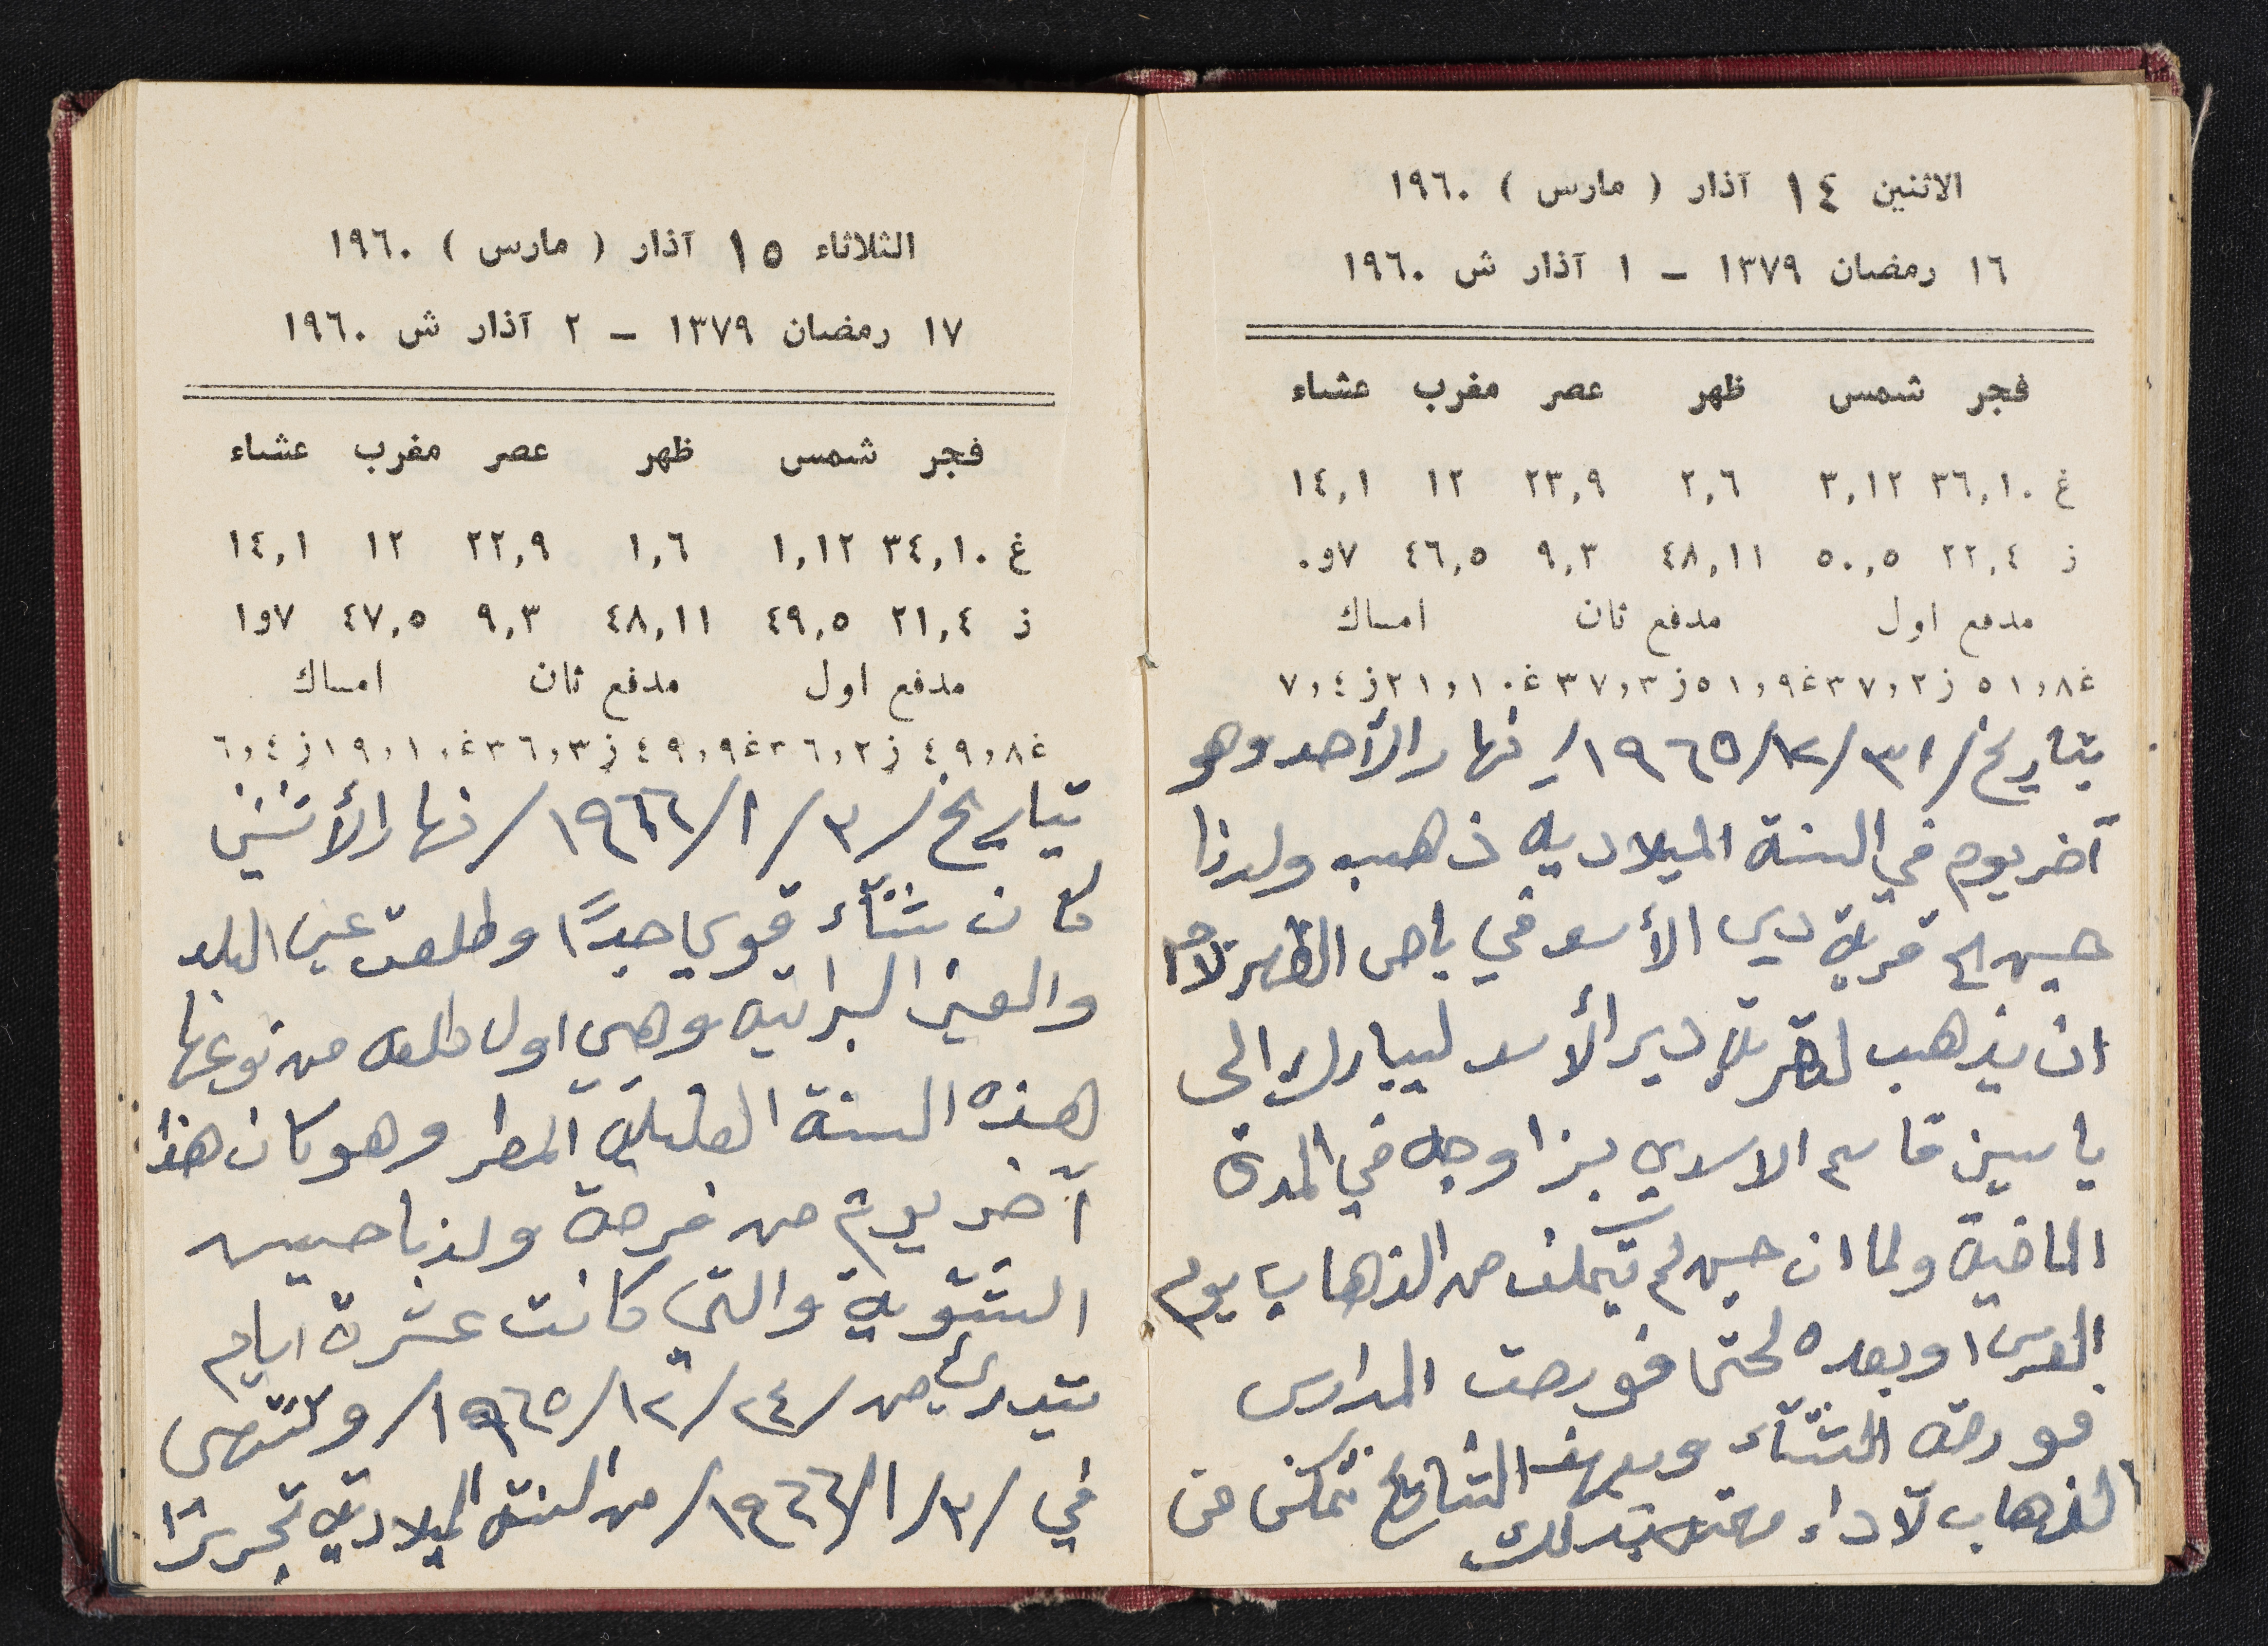 الاثنين ١٤ آذار ( مارس ) ١٩٦٠
١٦ رمضان ١٣٧٩ – ١ آذار ش ١٩٦٠
فجر شمس ظهر عصر مغرب عشاء
غ ٣٦,١٠ ٣,١٢ ٢,٦ ٢٣,٩ ١٢ ١٤,١
ز ٢٢,٤ ٥٠,٥ ٤٨,١١ ٩,٣ ٤٦,٥ ٧و٠
مدفع اول مدفع ثان امساك
غ٥١,٨ ز٣٧,٢ غ٥١,٩ ز٣٧,٣ غ٢١,١٠ ز٧,٤
بتاريخ /٣١/١٢/١٩٦٥/ نهار الأحد وهو
آخر يوم في السنة الميلاديه ذهب ولدنا
حسين الى قرية دير الأسد في باص الظهر لاجل
ان يذهب لقرية دير الأسد ليبارك الى
ياسين قاسم الاسدي بزاوجه في المدة
الماضية ولما ان حسين لم يتمكن من الذهاب يوم
العرس او بعده لحتى فورصت المدارس
فورصة الشتآء وبعرف الشايع تمكن من
الذهاب لآداء مهنته بذلك
الثلاثاء ١٥ آذار ( مارس ) ١٩٦٠
١٧ رمضان ١٣٧٩ – ٢ آذار ش ١٩٦٠
فجر شمس ظهر عصر مغرب عشاء
غ ٣٤,١٠ ١,١٢ ١,٦ ٢٢,٩ ١٢ ١٤,١
ز ٢١,٤ ٤٩,٥ ٤٨,١١ ٩,٣ ٤٧,٥ ٧و١
مدفع اول مدفع ثان امساك
غ٤٩,٨ ز٣٦,٢ غ٤٩,٩ ز٣٦,٣ غ١٩,١٠ ز٦,٤
بتاريخ /٣/١/١٩٦٦/ نهار الأثنين
كان شتآء قوي جدًا وطلعت عين البلد
والعين البرانيه وهي اول طلعه من نوعها
هذه السنة القليلة المطر وهو كان هذا
آخر يوم من فرصة ولدنا حسين
الشتوية والتي كانت عشرة ايام
تبدئ من /٢٤/١٢/١٩٦٥/ وتنتهي
في /٣/١/١٩٦٦/ من السنة الميلادية تحريرًا